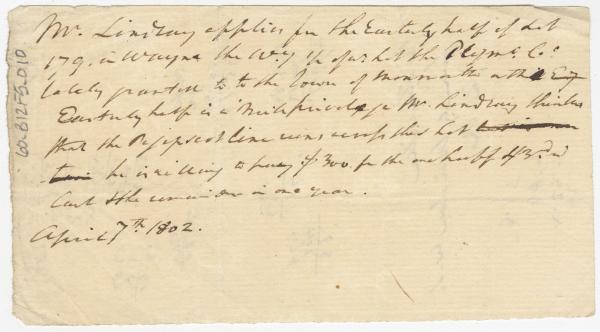 Mr. Lindsay applies for the Easterly half of Lot
179. in Wayne the Wy. of sd. Lot the Plymo. Co.
lately granted to to the Town of Monmouth
Easterly half is a Mill privilege Mr. Lindsay thinks
that the Pejepscot line runs across this Lot
he is willing to pay $300 for the one half $
Cash & the remainder in one year.
April 7th. 1802.
60-B12F5-010